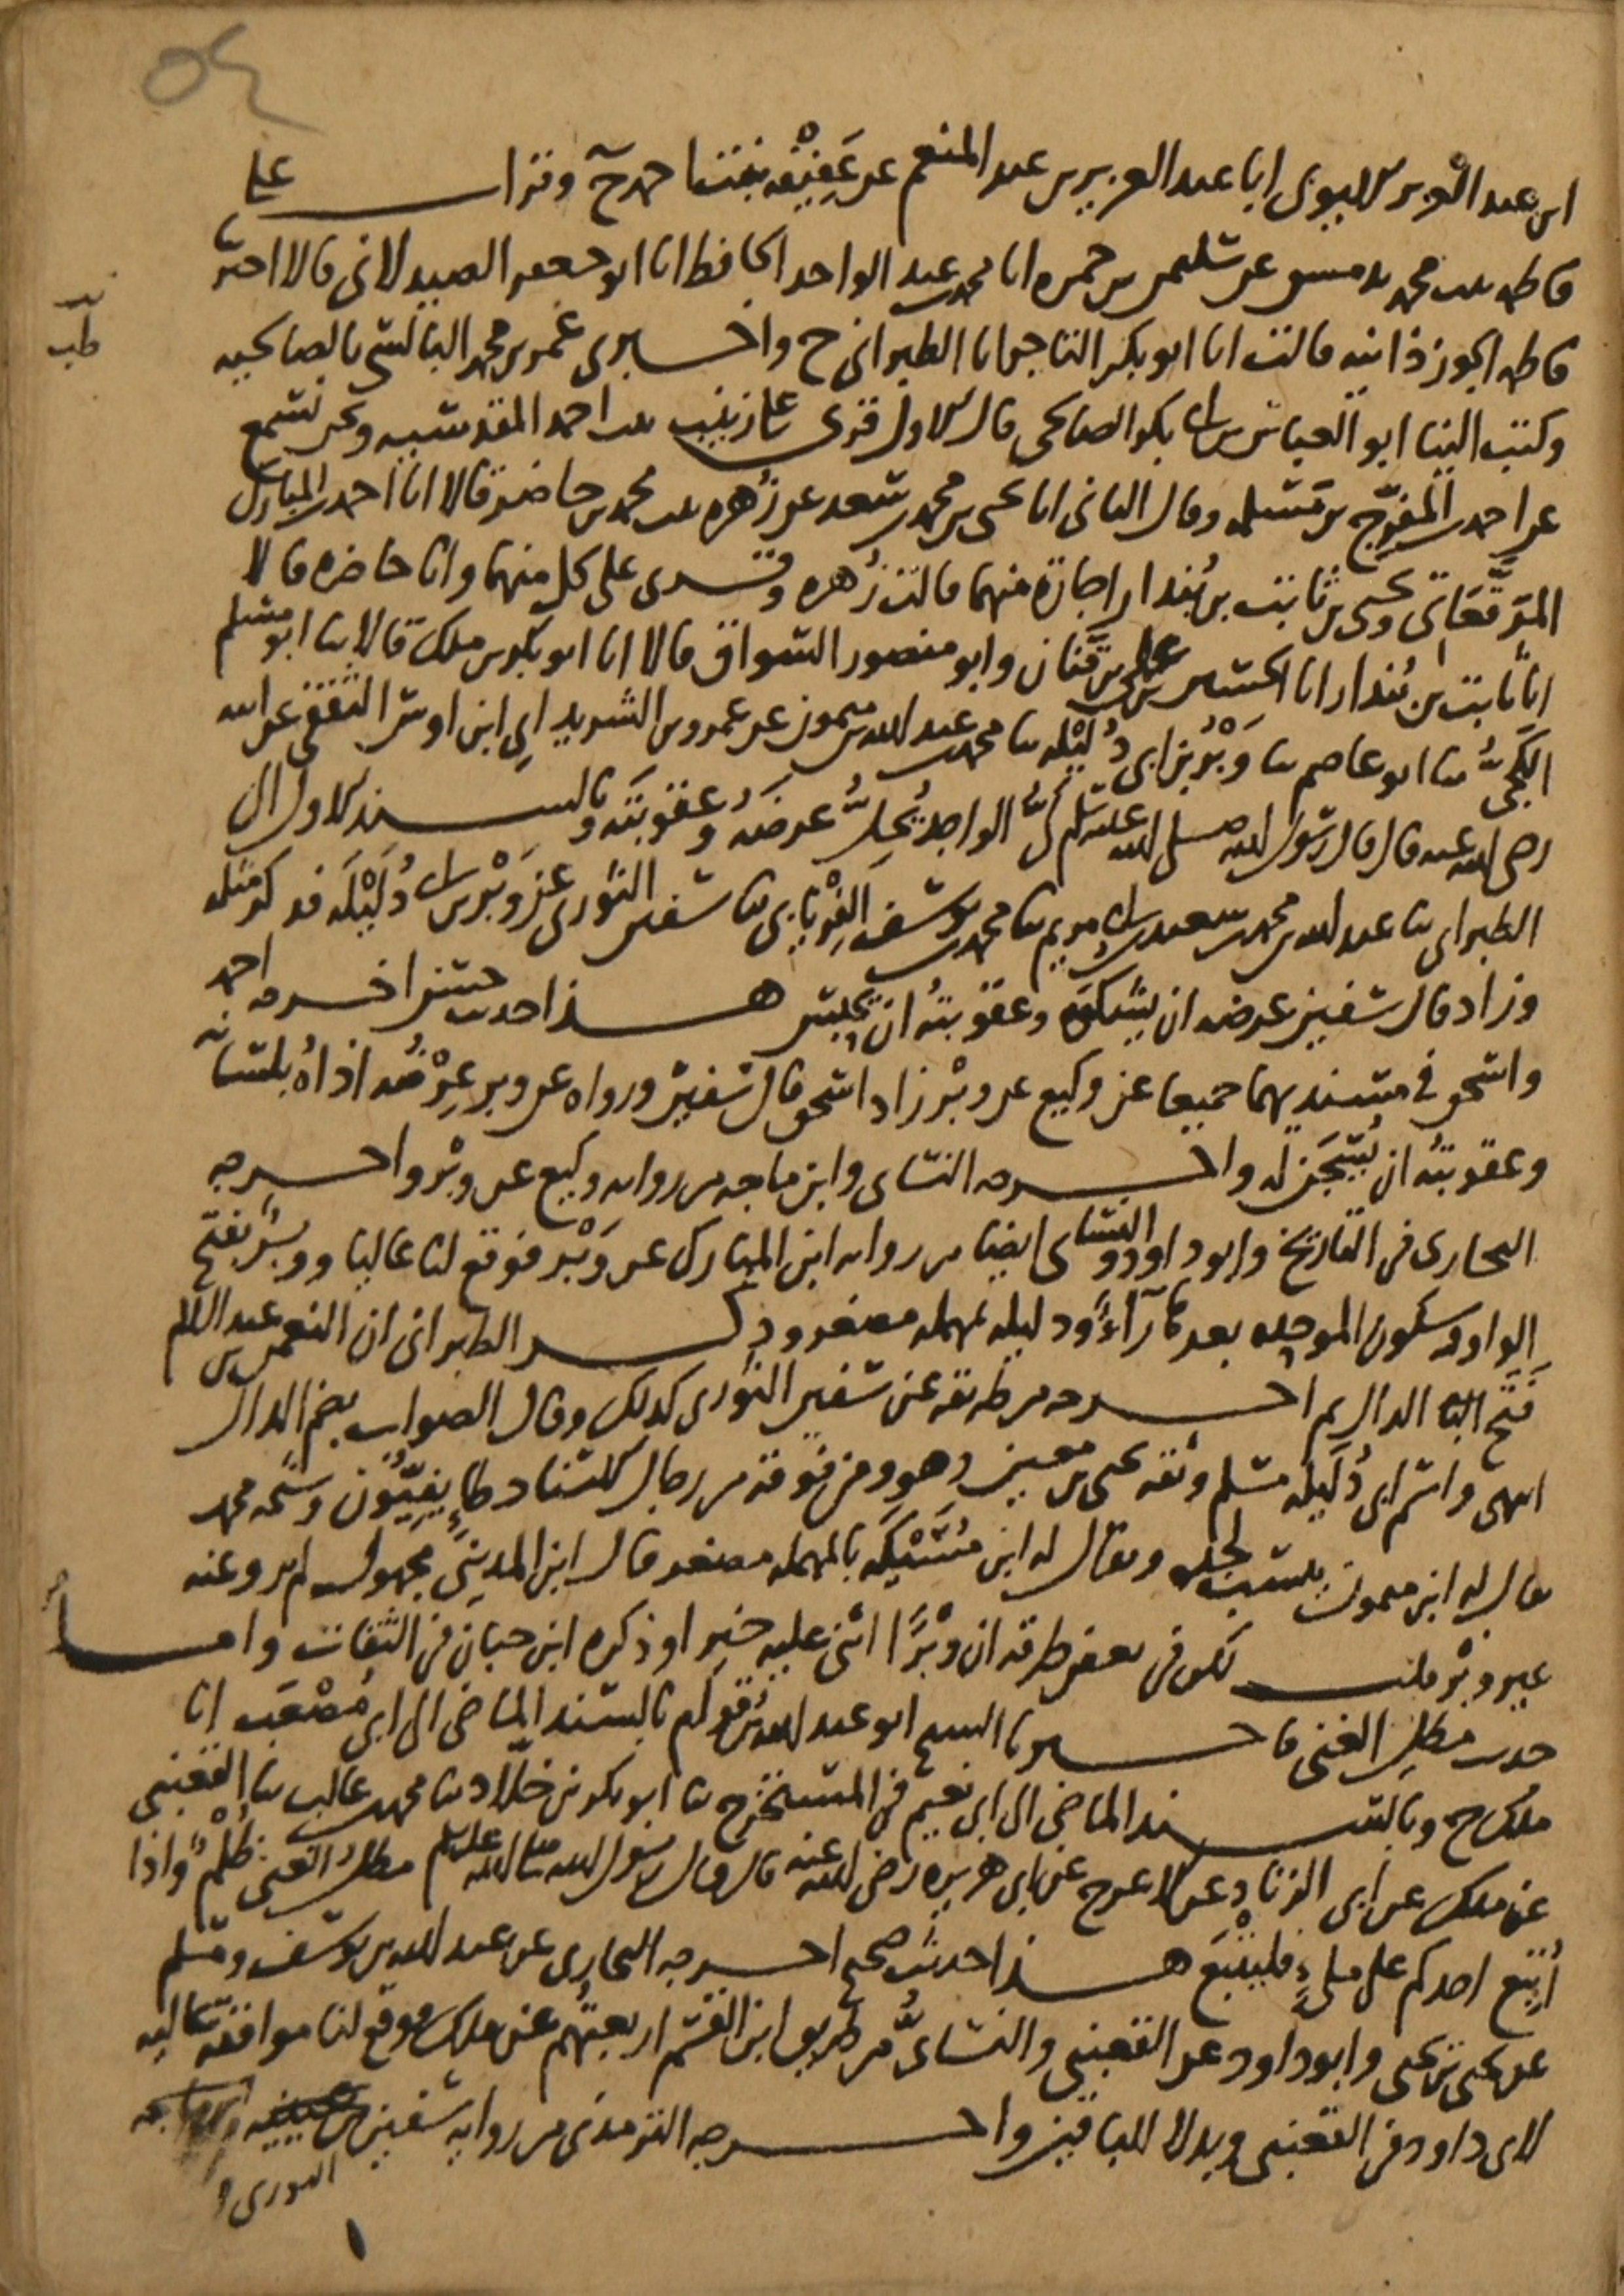 ٥٤
ابن عبد العزيز الايوبى انا عبد العزيز بن عبد المنعم عن عفيفة بنت احمد ح وقرات على
فاطمة بنت محمد بدمشق عن سليمن بن حمزة انا محمد بن عبد الواحد الحافظ انا ابو جعفر الصيدلانى قالا اخبرتنا
فاطمة الجوزذانية قالت انا ابو بكر التاجر انا الطبرانى ح واخبرنى عمر بن محمد البالسى بالصالحية
وكتب الينا ابو العباس بن ابى بكر الصالحى قال الاول قرئ على زينب بنت احمد المقدسية ونحن نسمع
عن احمد بن المفرج بن مسلمة وقال الثانى انا يحيى بن محمد بن سعد عن زهرة بنت محمد بن حاضر قالا انا احمد بن المبارك
المرقعاتى ويحيى بن ثابت بن بندار اجازة منهما قالت زهرة وقرئ على كل منهما وانا حاضرة قالا
انا ثابت بن بندار انا الحسين بن على بن قنان وابو منصور السواق قالا انا ابو بكر بن ملك قالا ثنا ابو مسلم
الكجى ثنا ابو عاصم ثنا وبر بن ابى دليلة ثنا محمد بن عبد الله بن ميمون عن عمرو بن الشريد اى ابن اوس الثقفى عن ابيه
رضى الله عنه قال قال رسول الله صلى الله عليه وسلم لى الواجد يحل عرضه وعقوبته وبالسند الاول الى
الطبرانى ثنا عبد الله بن محمد بن سعيد بن ابى مريم ثنا محمد بن يوسف الفريابى ثنا سفين الثورى عن وبر بن ابى دليلة فذكر مثله
وزاد قال سفين عرضه ان يشكوه وعقوبته ان يحبس هذا حديث حسن اخرجه احمد
واسحق فى مسنديهما جميعا عن وكيع عن وبر زاد اسحق قال سفين ورواه عن وبر عرضه اذاه بلسانه
وعقوبته ان يسجن له واخرجه النساى وابن ماجه من رواية وكيع عن وبر واخرجه
البخارى فى التاريخ وابو داود والنساى ايضا من رواية ابن المبارك عن وبر فوقع لنا عاليا ووبر بفتح
الواو وسكون الموحدة بعدها راء ودليلة بمهملة مصغر وذكر الطبرانى ان النعمن بن عبد السلم
فتح الدال ثم اخرجه من طريقه عن سفين الثورى كذلك وقال الصواب بضم الدال
انتهى واسم ابى دليلة مسلم وثقه يحيى بن معين وهو ومن فوقه من رجال الاسناد طايفيون وشيخه محمد
يقال له ابن ميمون ينسب لجده ويقال له ابن مسيكة بالمهملة مصغر قال ابن المدينى مجهول لم يرو عنه
غير وبر قلت لكن فى بعض طرقه ان وبرا اثنى عليه خيرا وذكره ابن حبان فى الثقات واما
حديث مطل الغنى فاخبرنا الشيخ ابو عبد الله بن قوام بالسند الماضى الى ابى مصعب انا
ملك ح وبالسند الماضى الى ابى نعيم فى المستخرج ثنا ابو بكر بن خلاد ثنا محمد بن غالب ثنا القعنبى
عن ملك عن ابى الزناد عن الاعرج عن ابى هريرة رضى الله عنه قال قال رسول الله صلى الله عليه وسلم مطل الغنى ظلم واذا
اتبع احدكم على ملىء فليتبع هذا حديث صحيح اخرجه البخارى عن عبد الله بن يوسف ومسلم
عن يحيى بن يحيى وابو داود عن القعنبى والنساى من طريق ابن القسم اربعتهم عن ملك فوقع لنا موافقة عالية
لابى داود فى القعنبى وبدلا للباقين واخرجه الترمذى من رواية سفين
الثورى